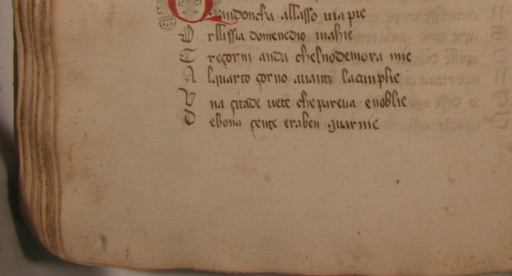 Quindoncha allasso uia pie
O rllissia domenedio mahie
T reçorni anda chelnodemora mie
A lquarto çorno auanti lacinplie
V na citade uete chepareua enoblie
D ebona çente eraben guarnie